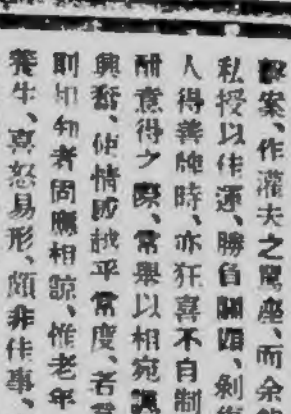 案、作灌夫之罵座、而余
私授以佳運、勝負關頭、剝
人得善牌時、亦狂喜不自制
酣意得之際、常舉以相宛
興奮、使情感越乎常度、者
則知者固應相諒、惟老年
養生、喜怒易形、頗非佳事、